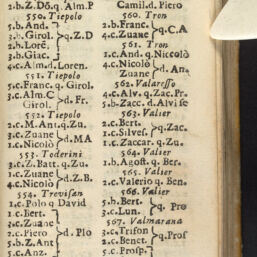 2.b.Z.Dõ.q. Alm.P
550. Tiepolo
5.b.And.
3.b.Girol. q.Z.D
2.b.Lorẽ.
3.b.Giac.
4.c.Alm.d.Loren.
551. Tiepolo
5.c.Franc. q. Girol.
3.c.Alm.C d. Fr.
Girol.
552. Tiepolo
2.c.M.Ant.q.Zu.
3.c.Zuane d.MA
1.c.Nicolò
553. Toderini
3.c.Z.Batt. q. Zu.
3.c.Zuane d.Z.B
4.c.Nicolò
554. Trevisan
1.c.Polo q David
1.c.Bert.
3.c.Zuane
2.c.Piero d. Plo
5.b.Z.Ant
2.c.Anz.
Camil.d. Piero
560. Tron
2.b.Franc. q.C.A
4.c.Zuane
561. Tron
1.c.And. q.Niccolò
4.c.Nicolò d. An.
Zuane
562. Valaresso
4.c.Alv. q. Zac.Pr.
5.b.Zacc. d.Alvise
563. Valier
2.c.Bert.
1.c.Silves. q.Zac.
1.c.Zaccar. q. Zu.
564. Valier
1.b.Agost. q. Ber.
565. Valier
2.c.Valerio q. Ben.
566. Valier
5.b.Bert. q. Pros
3.c.Lun.
567. Valmarana
3.c.Trifon q Pros
2.c.Benct.
5.c.Prosp.